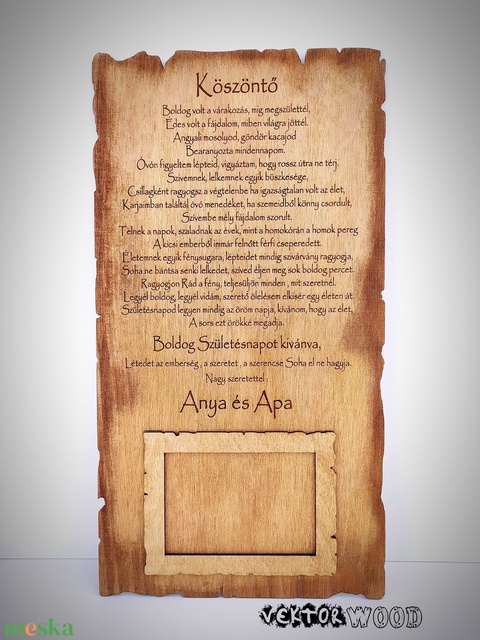 Köszöntő
Boldog volt a várakozás, míg megszülettél,
Édes volt a fájdalom, miben világra jöttél.
Angyali mosolyod, göndör kacajod
Bearanyozta mindennapom.
Óvón figyeltem lépteid, vigyáztam, hogy rossz útra ne térj.
Szívemnek, lelkemnek egyik büszkesége,
Csillagként ragyogsz a végtelenbe ha igazságtalan volt az élet,
Karjaimban találtál óvó menedéket, ha szemeidből könny csordult,
Szívembe mély fájdalom szorult.
Telnek a napok, szaladnak az évek, mint a homokórán a homok pereg
A kicsi emberből immár felnőtt férfi cseperedett.
Életemnek egyik fénysugara, lépteidet mindig szivárvány ragyogja,
Soha ne bántsa senki lelkedet, szíved éljen meg sok boldog percet.
Ragyogjon Rád a fény, teljesüljön minden , mit szeretnél.
Legyél boldog, legyél vidám, szerető ölelésem elkísér egy életen át.
Születésnapod legyen mindig az öröm napja, kívánom, hogy az élet,
A sors ezt örökké megadja.
Boldog Születésnapot kívánva,
Létedet az emberség , a szeretet , a szerencse Soha el ne hagyja.
Nagy szeretettel :
Anya és Apa
meska
VEKTORWOOD